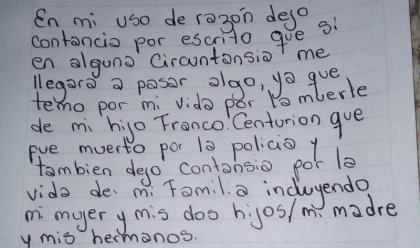 En mi uso de razón dejo
contancia por escrito que si
en alguna Circuntansia me
llegara a pasar algo, ya que
temo por mi vida por la muerte
de mi hijo Franco. Centurion que
fue muerto por la policia y
Tambien dejo Contansia por la
vida de. mi Familia incluyendo
mi mujer y mis dos hijos/mi madre
y mis hermanos.